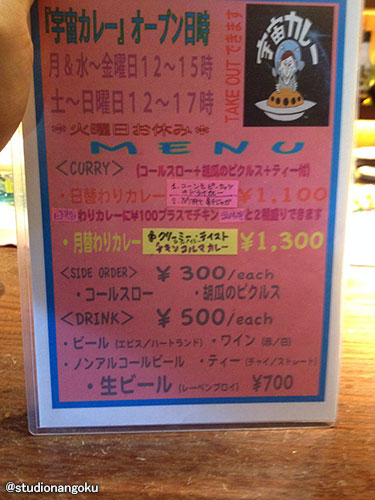 『宇宙カレー』オープン日時
月&水~金曜日12~15時
土~日曜日12~17時
※火曜日お休み※
TAKE OUT できます
宇宙カレー
MENU
<CURRY> (コールスロー+胡瓜のピクルス+ティー付)
・日替わりカレー ¥1,100
わりカレーに¥100プラスでチキン と2種盛りできます
・月替わりカレー クリーミー・テイスト チキンコルマカレー ¥1,300
<SIDE ORDER> ¥300/each
・コールスロー ・胡瓜のピクルス
<DRINK> ¥500/each
・ビール(エビス/ハートランド)・ワイン(赤/白)
・ノンアルコールビール ・ティー(チャイ/ストレート)
・生ビール(レーベンブロイ) ¥700
@studionangoku